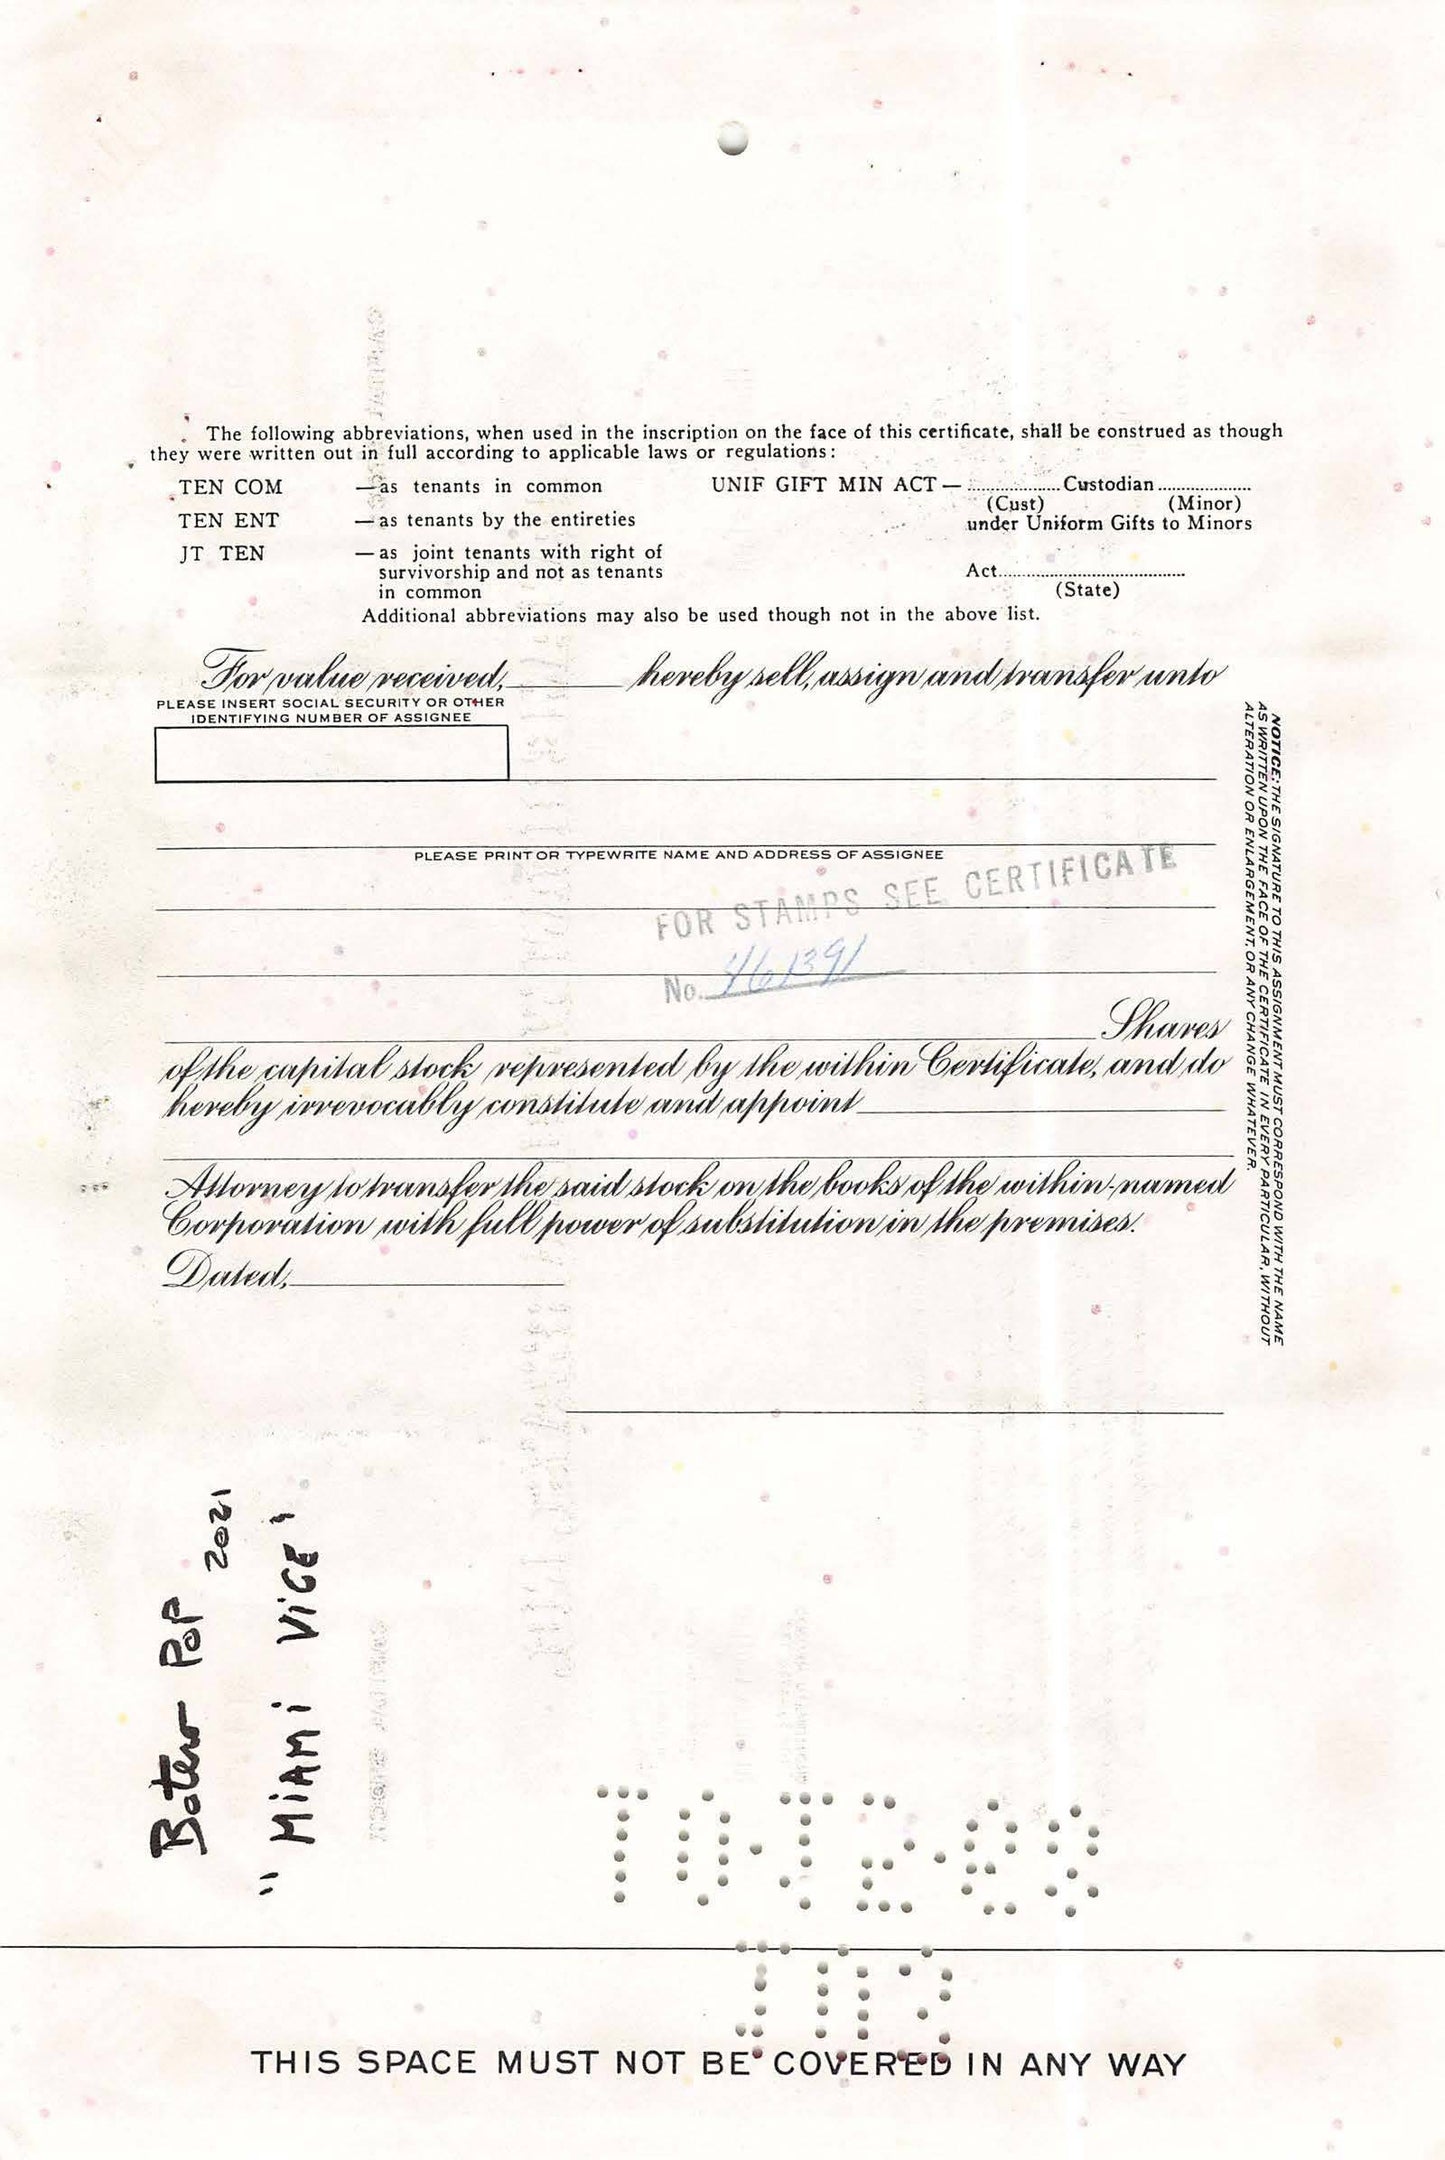 The following abbreviations, when used in the inscription on the face of this certificate, shall be construed as though
they were written out in full according to applicable laws or regulations:
TEN COM — as tenants in common
TEN ENT — as tenants by the entireties
JT TEN — as joint tenants with right of
survivorship and not as tenants
in common
UNIF GIFT MIN ACT — ..................Custodian...................
(Cust) (Minor)
under Uniform Gifts to Minors
Act.....................................
(State)
Additional abbreviations may also be used though not in the above list.
For value received, hereby sell, assign and transfer unto
PLEASE INSERT SOCIAL SECURITY OR OTHER
IDENTIFYING NUMBER OF ASSIGNEE
PLEASE PRINT OR TYPEWRITE NAME AND ADDRESS OF ASSIGNEE
FOR STAMPS SEE CERTIFICATE
No. 461391
Shares
of the capital stock represented by the within Certificate, and do
hereby irrevocably constitute and appoint
Attorney to transfer the said stock on the books of the within-named
Corporation with full power of substitution in the premises.
Dated,
NOTICE: THE SIGNATURE TO THIS ASSIGNMENT MUST CORRESPOND WITH THE NAME
AS WRITTEN UPON THE FACE OF THE CERTIFICATE IN EVERY PARTICULAR, WITHOUT
ALTERATION OR ENLARGEMENT, OR ANY CHANGE WHATEVER.
Botero Pop
2021
"MiAMi ViCE"
THIS SPACE MUST NOT BE COVERED IN ANY WAY